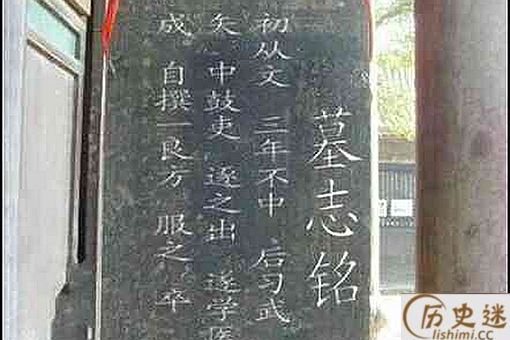 墓志铭
初从文 三年不中 后习武
矢 中鼓吏 逐之出 遂学医
成 自撰一良方 服之 卒
历史迷
lishimi.cc